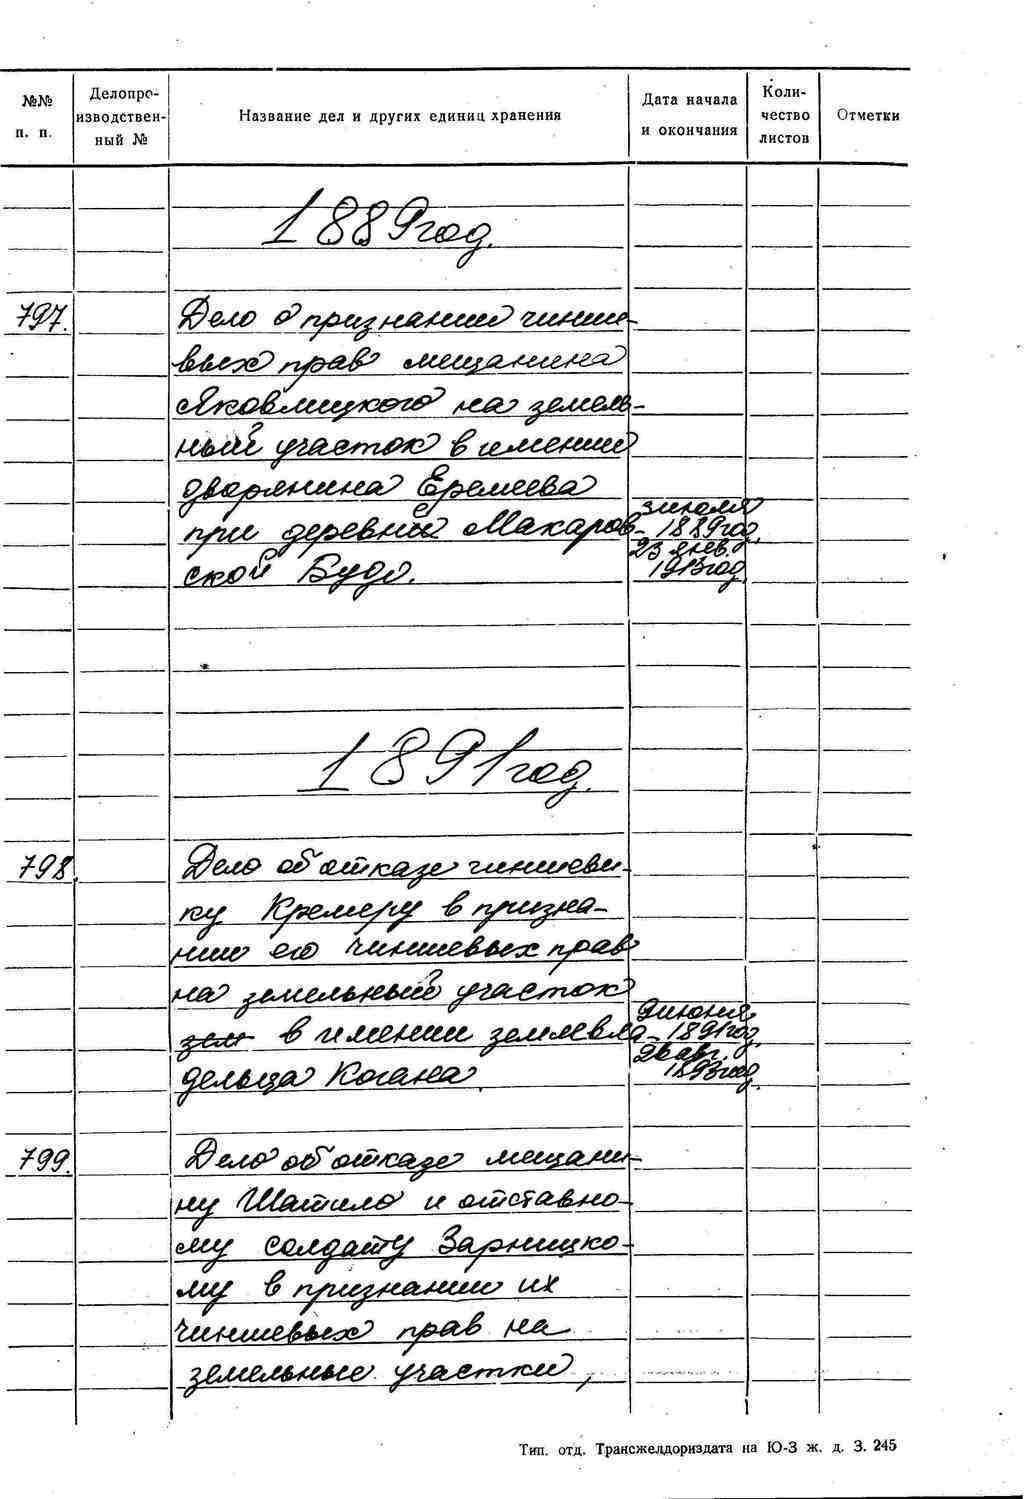 №№ п. п.
Делопроизводственный №
Название дел и других единиц хранения
Дата начала и окончания
Количество листов
Отметки
1889 год.
797.
Дело о признании чинше-
вых прав мещанина
Яковлицкого на земель-
ный участок в имении
дворянина Еремеева
при деревни Макаров-
ской Буде.
3 июля
1889 год.
23 янв.
1913 год
1891 год.
798.
Дело об отказе чиншеви-
ку Кремеру в призна-
нию его чиншевых прав
на земельный участок
зем в имении землевла-
дельца Когана.
9 июня
1891 год.
26 авг.
1893 год.
799.
Дело об отказе мещани-
ну Шатило и отставно-
му солдату Зарницко-
му в признании их
чиншевых прав на
земельные участки,
Тип. отд. Трансжелдориздата на Ю-З ж. д. З. 245